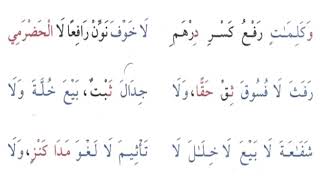 وَكَلِمَـٰتٍ رَفْعُ كَسْرِ دِرْهَمِ لَا خَوْفَ نَوِّنْ رَافِعًا لَا الْحَضْرَمِي
رَفَثَ لَا فُسُوقَ ثِقْ حَقًّا، وَلَا جِدَالَ ثَبْتٌ، بَيْعَ خُلَّةَ وَلَا
شَفَـٰعَةَ لَا بَيْعَ لَا خِلَـٰلَ لَا تَأْثِيمَ لَا لَغْوَ مَدَا كَنْزٍ، وَلَا